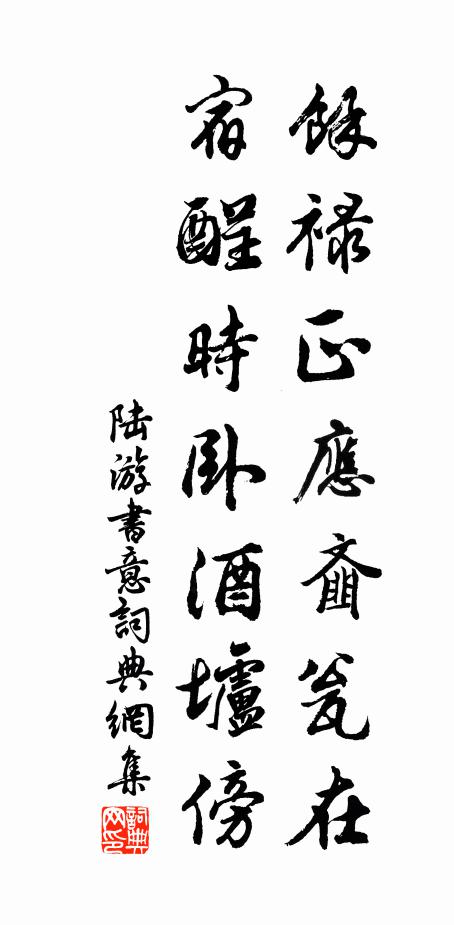 餘祿正應齑瓮在
宿酲時臥酒壚傍
陸游書意詞典網集
詞典网印